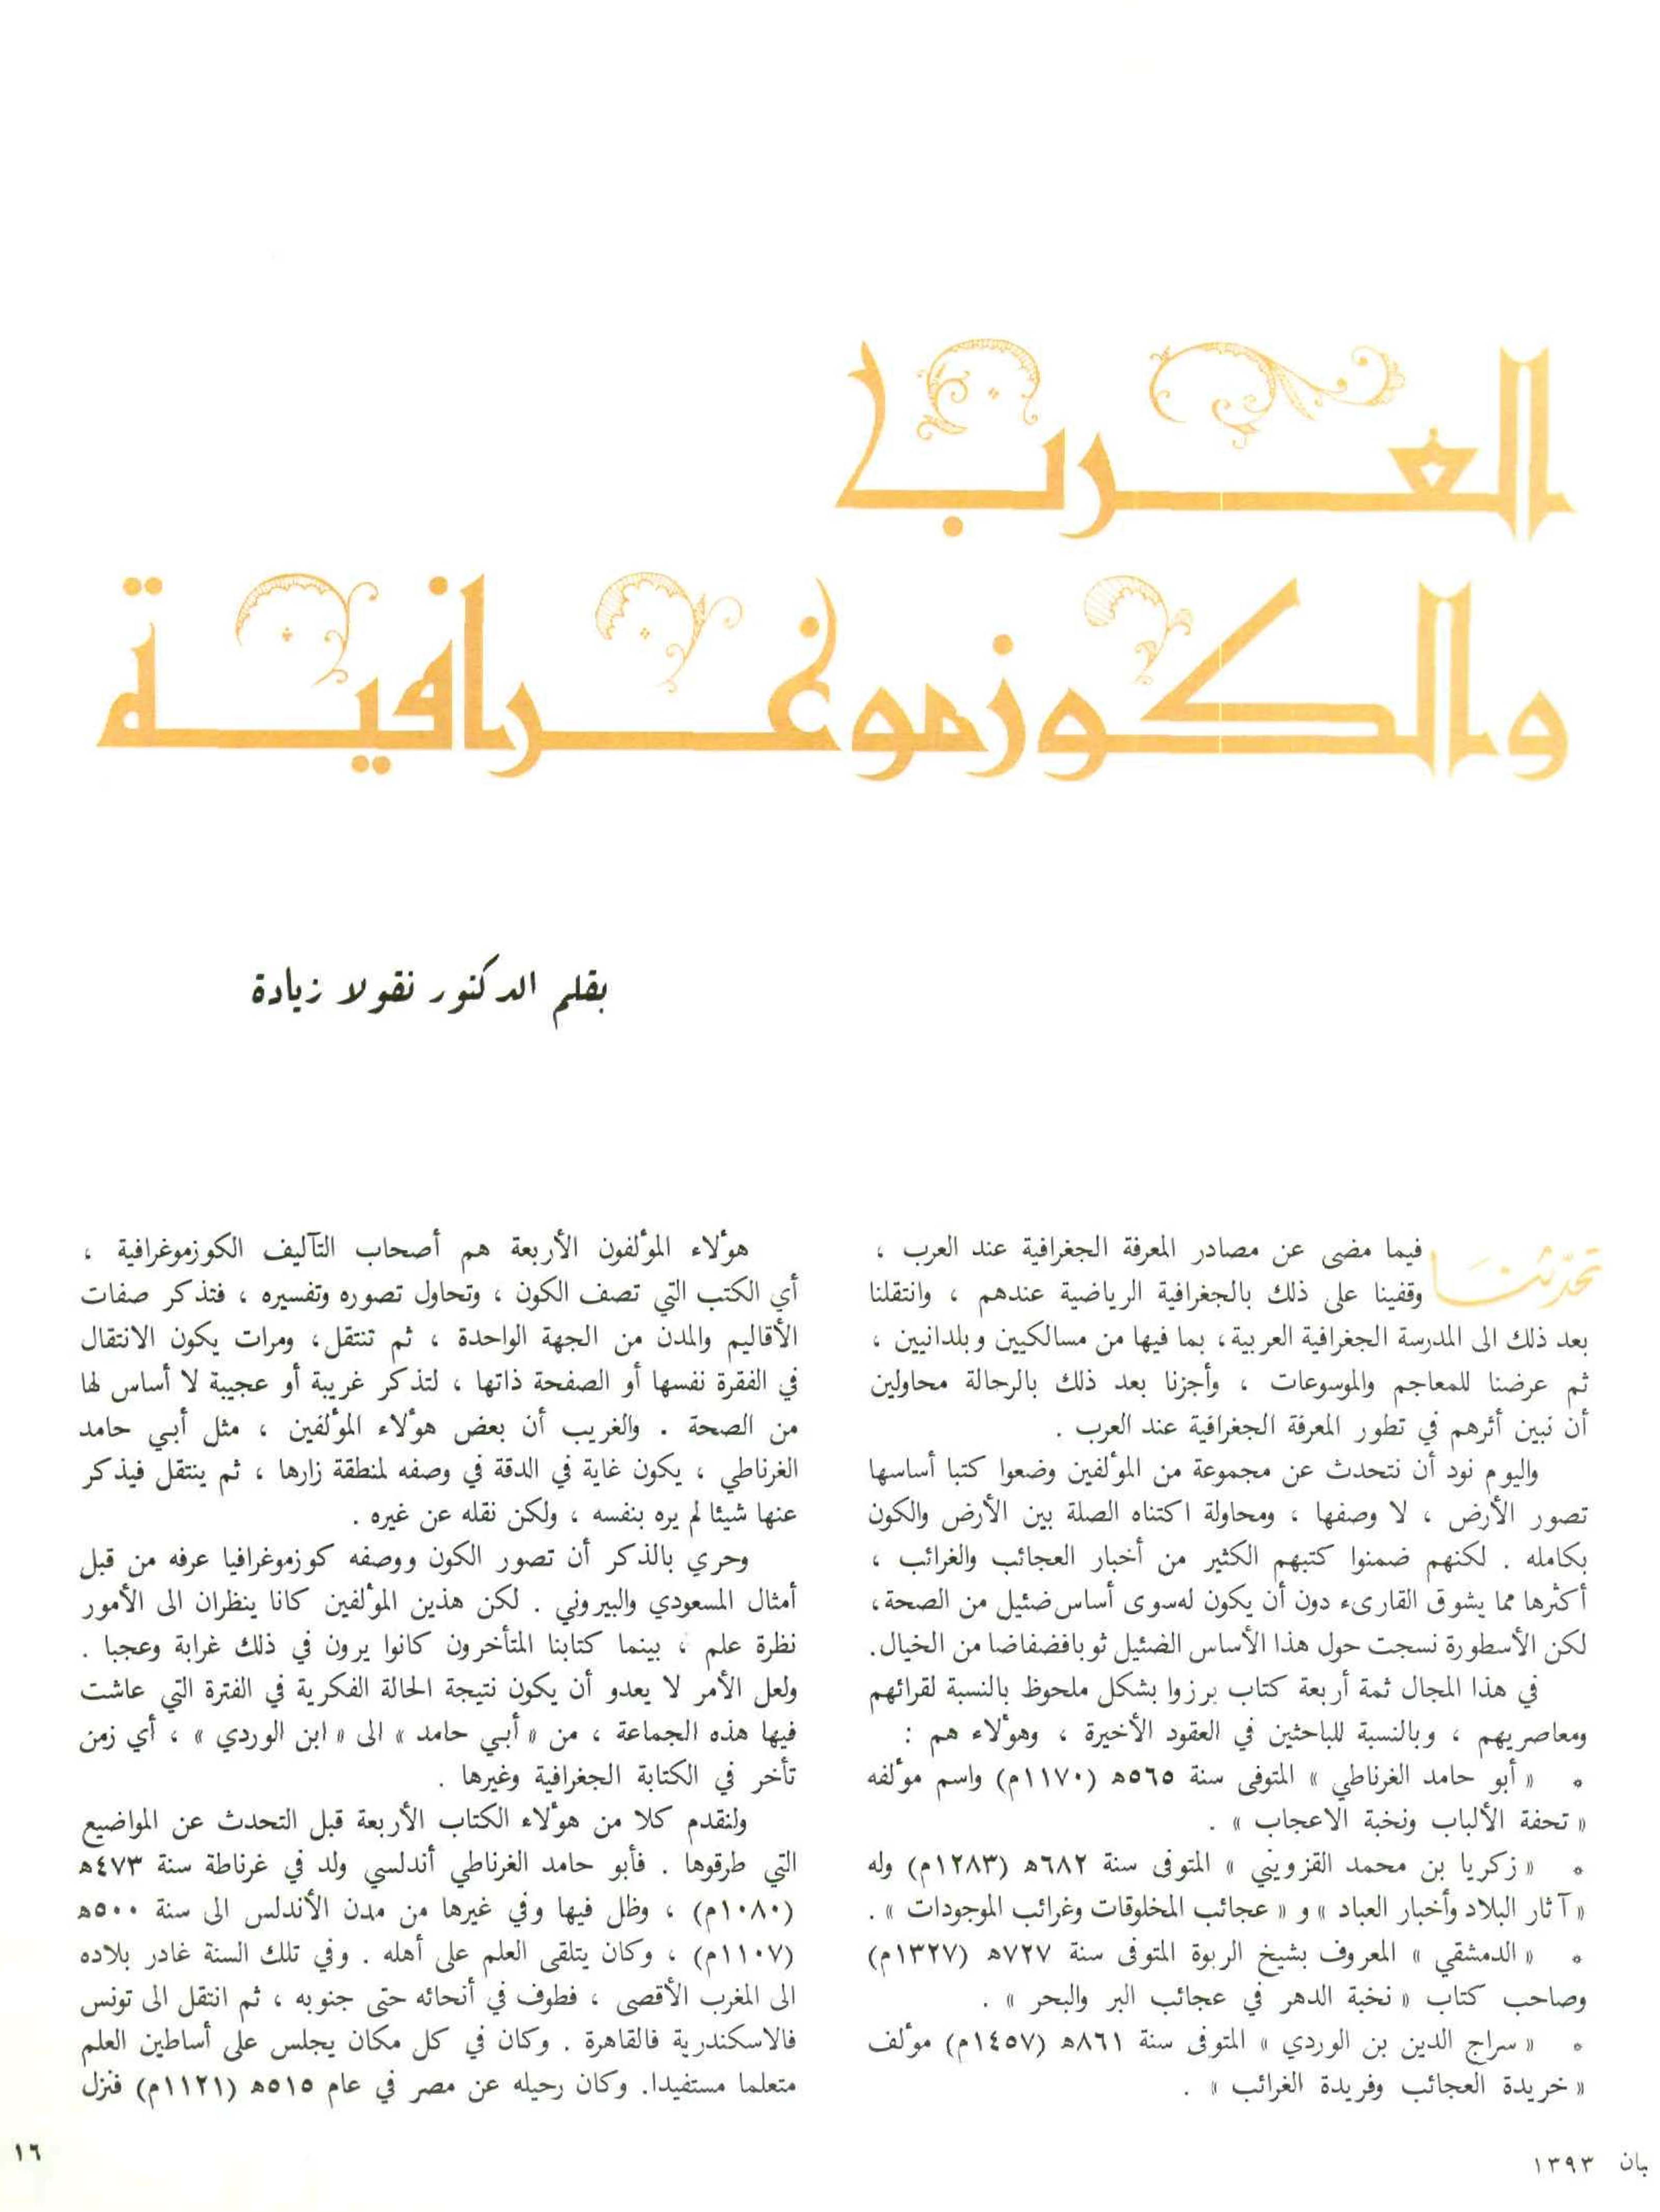 العرب
والكوزموغرافية
بقلم الدكتور نقولا زيادة
تحدّثنا فيما مضى عن مصادر المعرفة الجغرافية عند العرب ،
وقفينا على ذلك بالجغرافية الرياضية عندهم ، وانتقلنا
بعد ذلك الى المدرسة الجغرافية العربية، بما فيها من مسالكيين وبلدانيين ،
ثم عرضنا للمعاجم والموسوعات ، وأجزنا بعد ذلك بالرحالة محاولين
أن نبين أثرهم في تطور المعرفة الجغرافية عند العرب .
واليوم نود أن نتحدث عن مجموعة من المؤلفين وضعوا كتبا أساسها
تصور الأرض ، لا وصفها ، ومحاولة اكتناه الصلة بين الأرض والكون
بكامله . لكنهم ضمنوا كتبهم الكثير من أخبار العجائب والغرائب ،
أكثرها مما يشوق القارىء دون أن يكون له سوى أساس ضئيل من الصحة،
لكن الأسطورة نسجت حول هذا الأساس الضئيل ثوبا فضفاضا من الخيال.
في هذا المجال ثمة أربعة كتاب برزوا بشكل ملحوظ بالنسبة لقرائهم
ومعاصريهم ، وبالنسبة للباحثين في العقود الأخيرة ، وهؤلاء هم :
• « أبو حامد الغرناطي » المتوفى سنة ٥٦٥ه (١١٧٠م) واسم مؤلفه
« تحفة الألباب ونخبة الاعجاب » .
• « زكريا بن محمد القزويني » المتوفى سنة ٦٨٢ه (١٢٨٣م) وله
« آثار البلاد وأخبار العباد » و « عجائب المخلوقات وغرائب الموجودات » .
• « الدمشقي » المعروف بشيخ الربوة المتوفى سنة ٧٢٧ه (١٣٢٧م)
وصاحب كتاب « نخبة الدهر في عجائب البر والبحر » .
• « سراج الدين بن الوردي » المتوفى سنة ٨٦١ه (١٤٥٧م) مؤلف
« خريدة العجائب وفريدة الغرائب » .
هؤلاء المؤلفون الأربعة هم أصحاب التآليف الكوزموغرافية ،
أي الكتب التي تصف الكون ، وتحاول تصوره وتفسيره ، فتذكر صفات
الأقاليم والمدن من الجهة الواحدة ، ثم تنتقل، ومرات يكون الانتقال
في الفقرة نفسها أو الصفحة ذاتها ، لتذكر غريبة أو عجيبة لا أساس لها
من الصحة . والغريب أن بعض هؤلاء المؤلفين ، مثل أبي حامد
الغرناطي ، يكون غاية في الدقة في وصفه لمنطقة زارها ، ثم ينتقل فيذكر
عنها شيئا لم يره بنفسه ، ولكن نقله عن غيره .
وحري بالذكر أن تصور الكون ووصفه كوزموغرافيا عرفه من قبل
أمثال المسعودي والبيروني . لكن هذين المؤلفين كانا ينظران الى الأمور
نظرة علم ، بينما كتابنا المتأخرون كانوا يرون في ذلك غرابة وعجبا .
ولعل الأمر لا يعدو أن يكون نتيجة الحالة الفكرية في الفترة التي عاشت
فيها هذه الجماعة ، من « أبي حامد » الى « ابن الوردي » ، أي زمن
تأخر في الكتابة الجغرافية وغيرها .
ولنقدم كلا من هؤلاء الكتاب الأربعة قبل التحدث عن المواضيع
التي طرقوها . فأبو حامد الغرناطي أندلسي ولد في غرناطة سنة ٤٧٣ه
(١٠٨٠م) ، وظل فيها وفي غيرها من مدن الأندلس الى سنة ٥٠٠ه
(١١٠٧م) ، وكان يتلقى العلم على أهله . وفي تلك السنة غادر بلاده
الى المغرب الأقصى ، فطوف في أنحائه حتى جنوبه ، ثم انتقل الى تونس
فالاسكندرية فالقاهرة . وكان في كل مكان يجلس على أساطين العلم
متعلما مستفيدا. وكان رحيله عن مصر في عام ٥١٥ه (١١٢١م) فنزل
١٦
بان ١٣٩٣